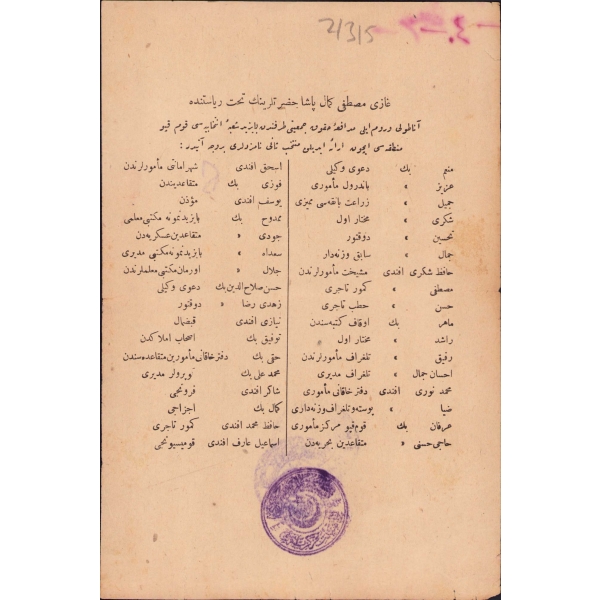 21315
غازی مصطفی كمال پاشا حضرتلرینك تحت ریاستنده
آناطولی و روم ایلی مدافعۀ حقوق جمعیتی طرفندن بایزید شعبۀ انتخابیه سی قوم قپو
منطقه سی ایچون ارائه ایدیلن منتخب ثانی نامزدلری بروجه آتیدر :
منیم بك دعوی وكیلی
عزیز » باندرول مأموری
جمیل » زراعت بانقه سی ممیزی
شكری » مختار اول
تحسین » دوقتور
جمال » سابق وزنه دار
حافظ شكری افندی مشیخت مأمورلرندن
مصطفی » كمور تاجری
حسن » حطب تاجری
ماهر بك اوقاف كتبه سندن
راشد » مختار اول
رفیق » تلغراف مأمورلرندن
احسان جمال » تلغراف مدیری
محمد نوری افندی دفتر خاقانی مأموری
ضیا » پوسته و تلغراف وزنه داری
عرفان بك قوم قپو مركز مأموری
حاجی حسنی » متقاعدین بحریه دن
اسحق افندی شهر امانتی مأمورلرندن
فوزی بك متقاعدیندن
یوسف افندی مؤذن
ممدوح بك بایزید نمونه مكتبی معلمی
جودی » متقاعدین عسكریه دن
سعدالله » بایزید نمونه مكتبی مدیری
جلال » اورمان مكتبی معلملرندن
حسن صلاح الدین بك دعوی وكیلی
زهدی رضا » دوقتور
نیازی افندی قبضمال
توفیق بك اصحاب املاكدن
حقی بك دفتر خاقانی مأمورین متقاعده سندن
محمد علی بك مدیری
شاكر افندی فرونجی
كمال بك اجزاجی
حافظ محمد افندی كمور تاجری
اسماعیل عارف افندی قومیسیونجی